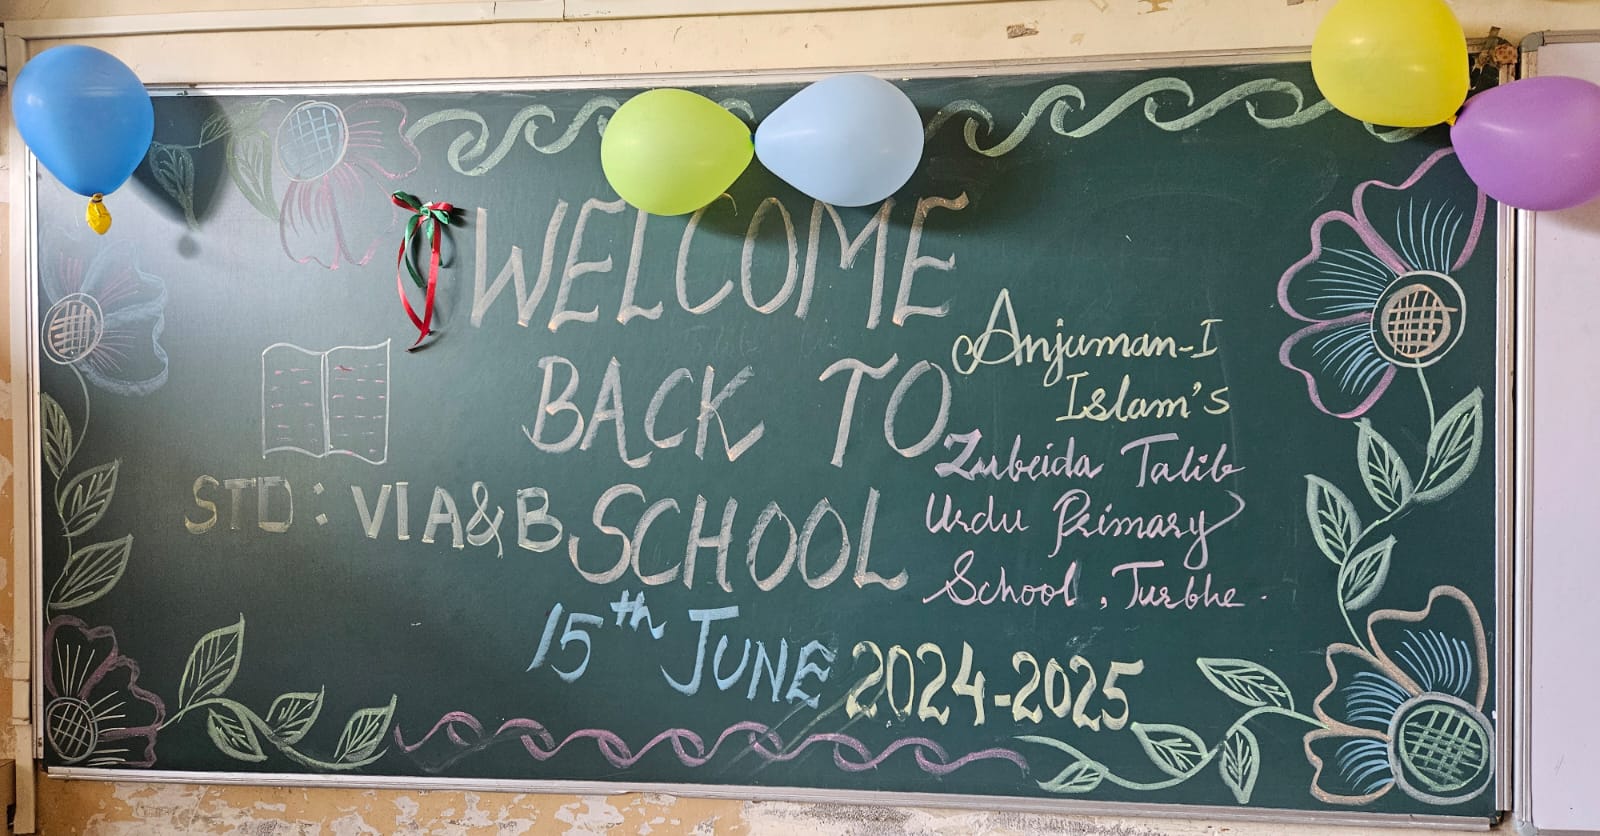 WELCOME
BACK TO
SCHOOL
15th JUNE 2024-2025
STD : VI A&B
Anjuman-I
Islam's
Zubeida Talib
Urdu Primary
School, Turbhe.